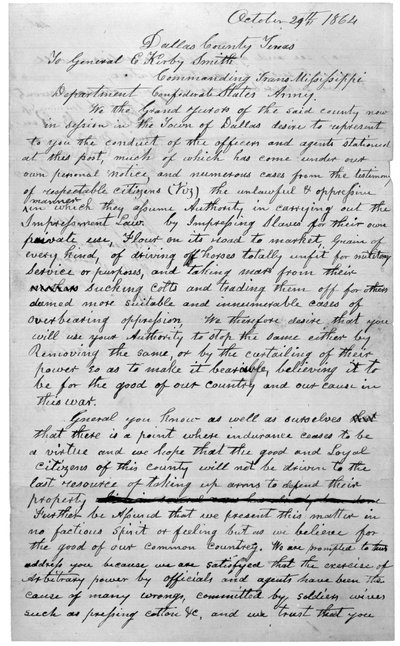 October 29th 1864
Dallas County Texas
To General E Kirby Smith
Commanding Trans Mississippi
Department Confederate States Army.
We the Grand Jurors of the said county now
in session in the Town of Dallas desire to represent
to you the conduct of the officers and agents stationed
at this post, much of which has come under our
own personal notice, and numerous cases from the testimony
of respectable citizens (Viz) the unlawful & oppressive
manner
in which they assume Authority, in carrying out the
Impressment Law. by Impressing Slaves for their own
private use, Flour on its road to market, Grain of
every kind, of driving off horses totally unfit for military
Service or purposes, and taking mars from their
sucking colts and trading them off for others
deemed more suitable and innumerable cases of
overbearing oppression. We therefore desire that you
will use your Authority to stop the same either by
Removing the same, or by the curtailing of their
power so as to make it bearable, believing it to
be for the good of our country and our cause in
this war.
General you know as well as ourselves that
that there is a point where indurance ceases to be
a virtue and we hope that the good and Loyal
Citizens of this county will not be driven to the
last resource of taking up arms to defend their
property
Further be Assured that we present this matter in
no factious Spirit or feeling but as we believe for
the good of our common country. We are prompted to
address you because we are satisfied that the exercise of
Arbitrary power by officials and agents have been the
cause of many wrongs, committed by soldiers wives
such as pressing cotton &C, and we trust that you